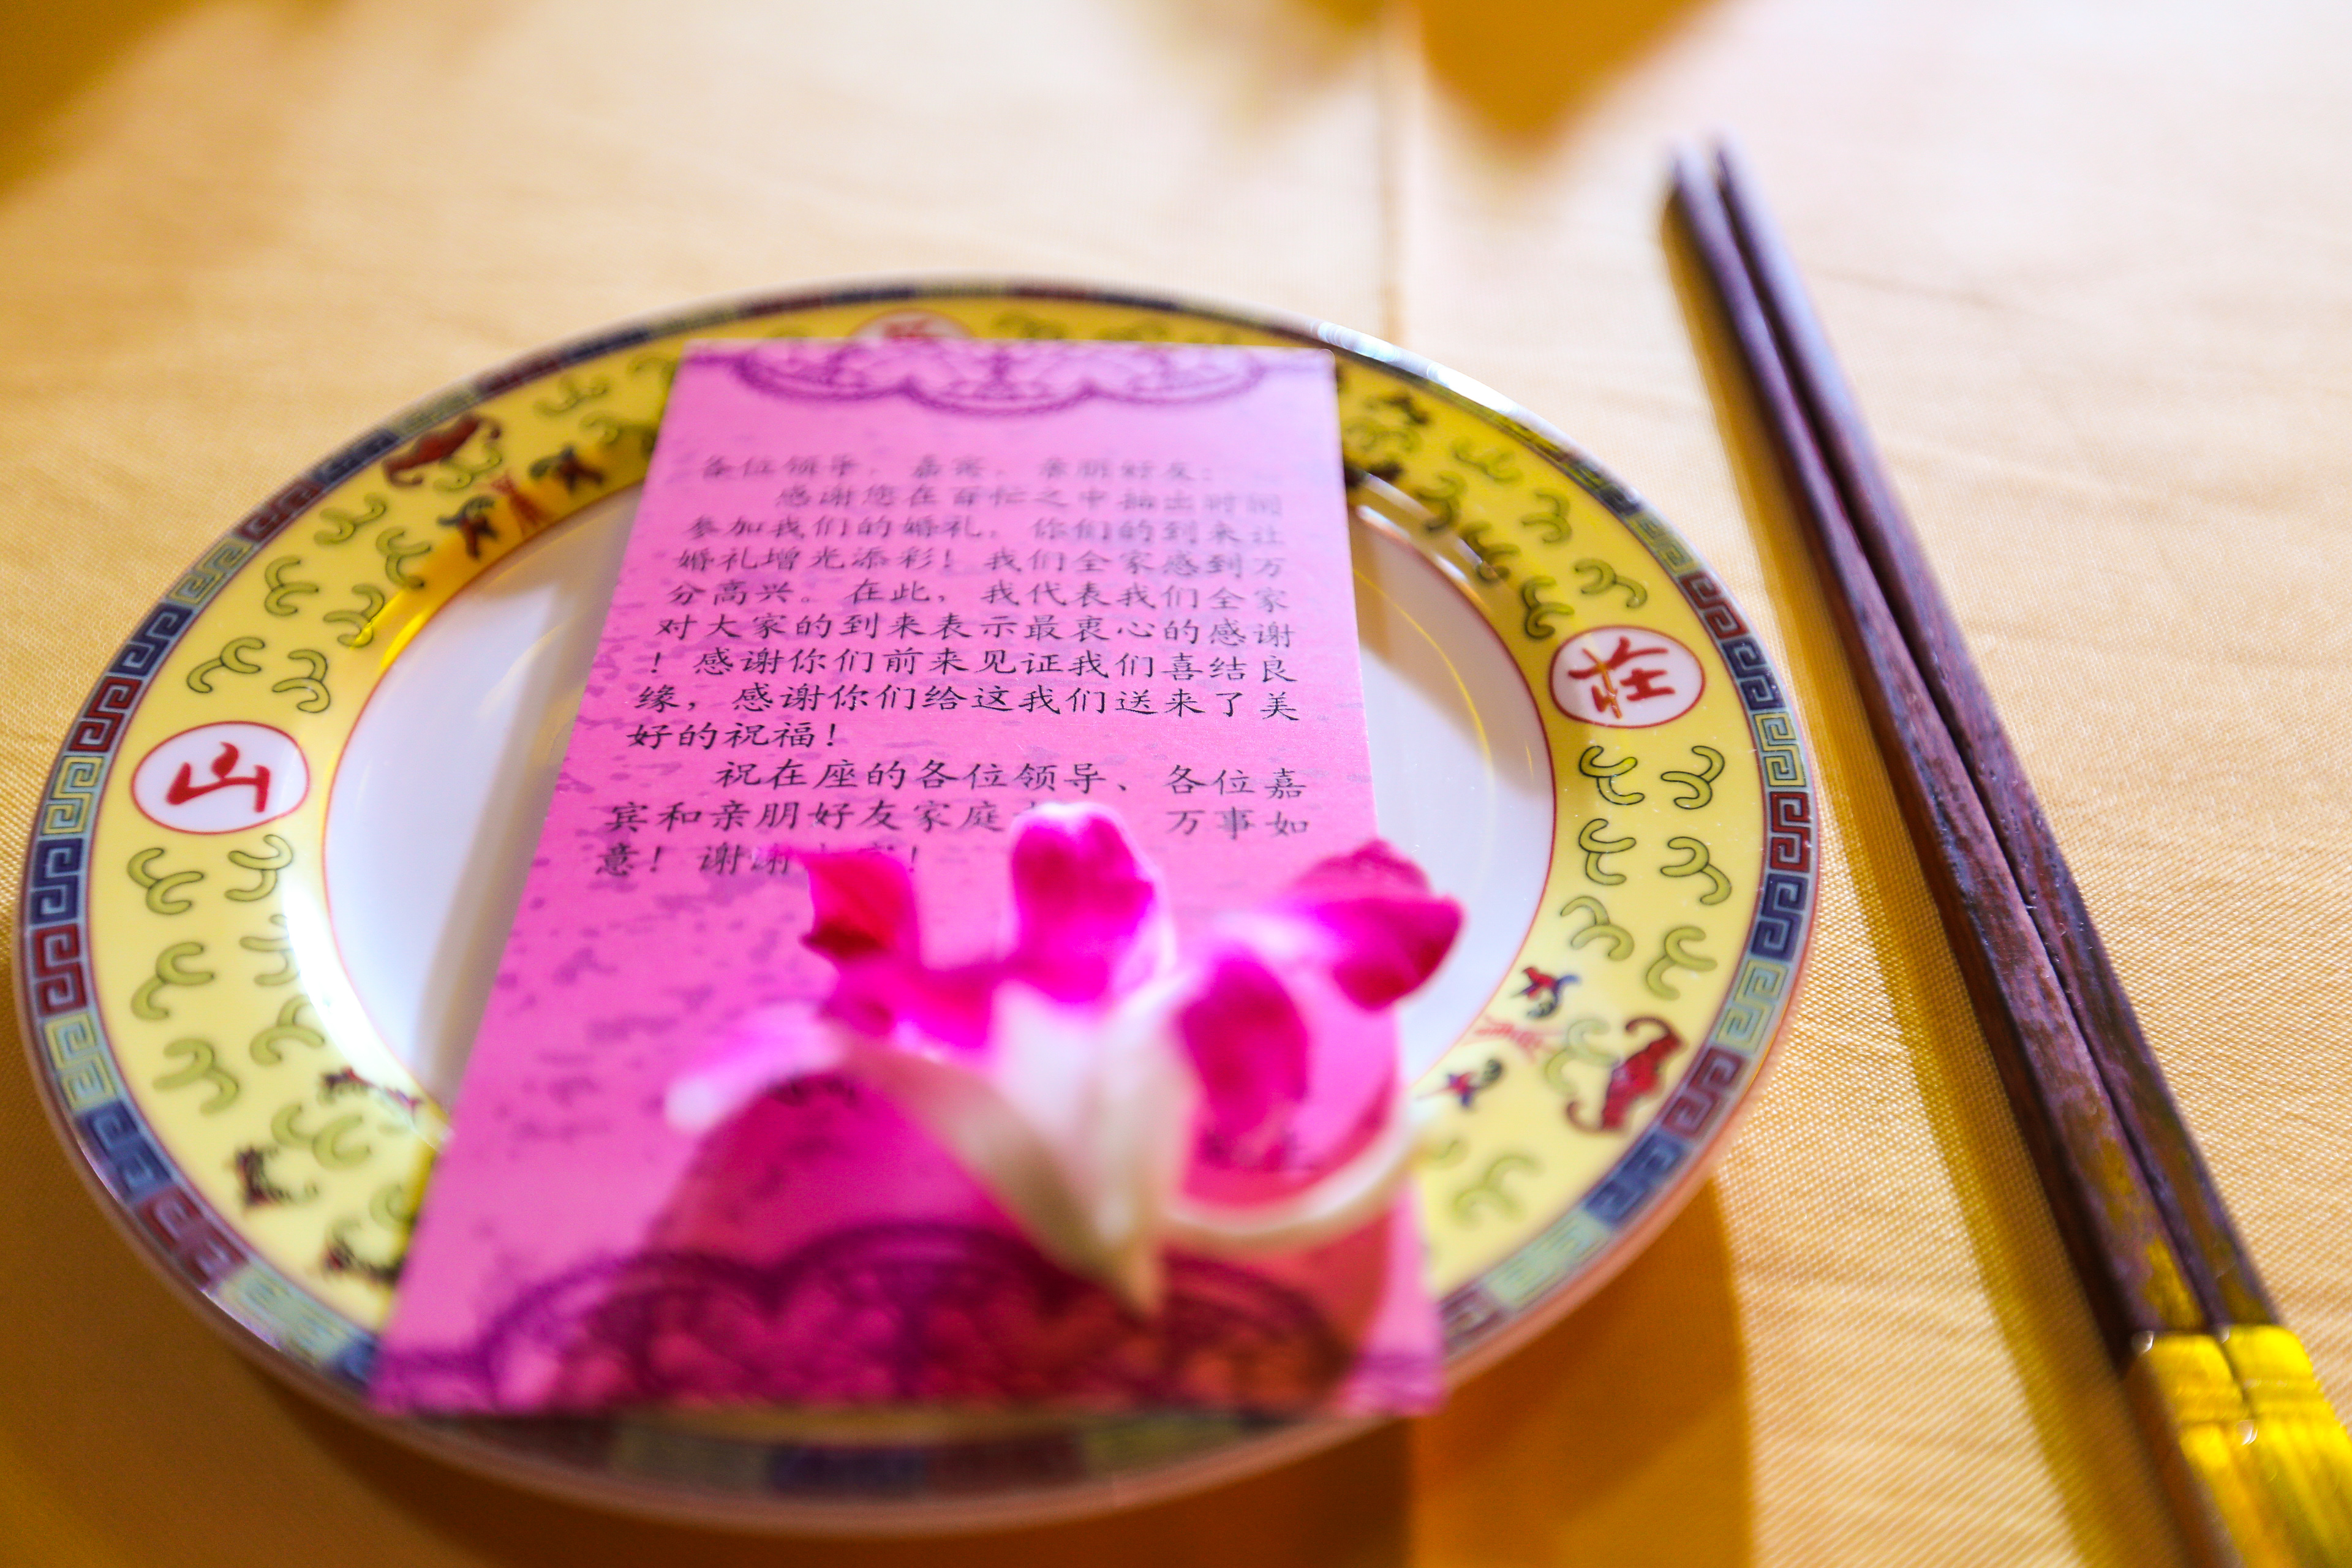 各位领导、嘉宾、亲朋好友：
感谢您在百忙之中抽出时间
参加我们的婚礼，你们的到来让
婚礼增光添彩！我们全家感到万
分高兴。在此，我代表我们全家
对大家的到来表示最衷心的感谢
！感谢你们前来见证我们喜结良
缘，感谢你们给这我们送来了美
好的祝福！
祝在座的各位领导、各位嘉
宾和亲朋好友家庭 万事如
意！谢谢 ！
山
庄